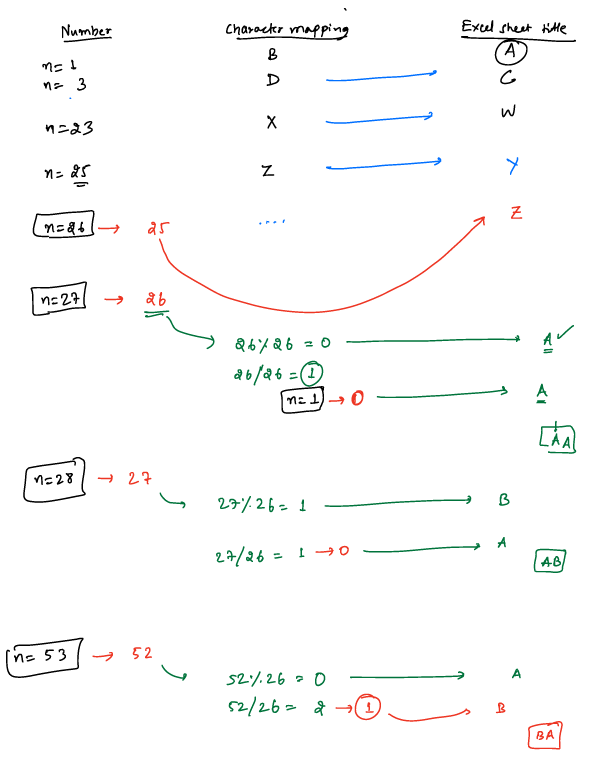 Number Character mapping Excel sheet title
n= 1 B A
n= 3 D C
n=23 X W
n= 25 Z Y
n=26 → 25 .... Z
n=27 → 26
26%26 = 0 A ✓
26/26 = 1
n=1 → 0 A
AA
n=28 → 27
27%26 = 1 B
27/26 = 1 → 0 A
AB
n= 53 → 52
52%26 = 0 A
52/26 = 2 → 1 B
BA